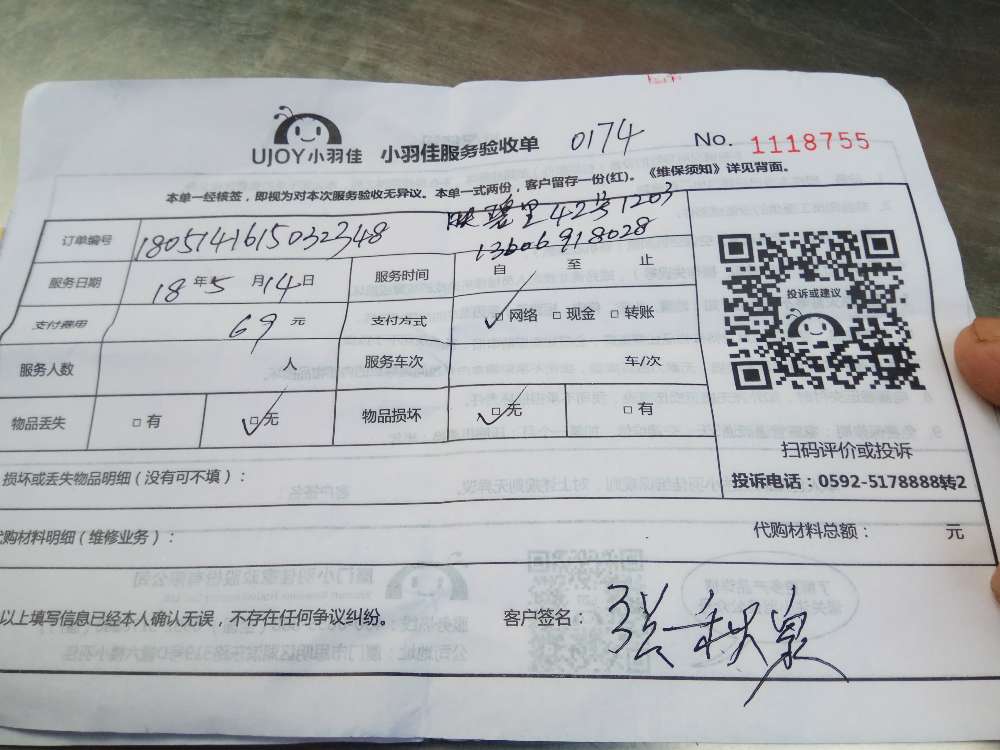 UJOY小羽佳 小羽佳服务验收单 0174 No. 1118755
本单一经核签，即视为对本次服务验收无异议。本单一式两份，客户留存一份(红)。《维保须知》详见背面。
订单编号 1805141615032348 里42号1203
13606918028
服务日期 18年5月14日 服务时间 自 至 止
支付费用 69元 支付方式 ☑网络 □现金 □转账
服务人数 人 服务车次 车/次
物品丢失 □有 ☑无 物品损坏 ☑无 □有
投诉或建议
扫码评价或投诉
投诉电话：0592-5178888转2
损坏或丢失物品明细（没有可不填）：
代购材料明细（维修业务）： 代购材料总额： 元
以上填写信息已经本人确认无误，不存在任何争议纠纷。 客户签名：张秋泉